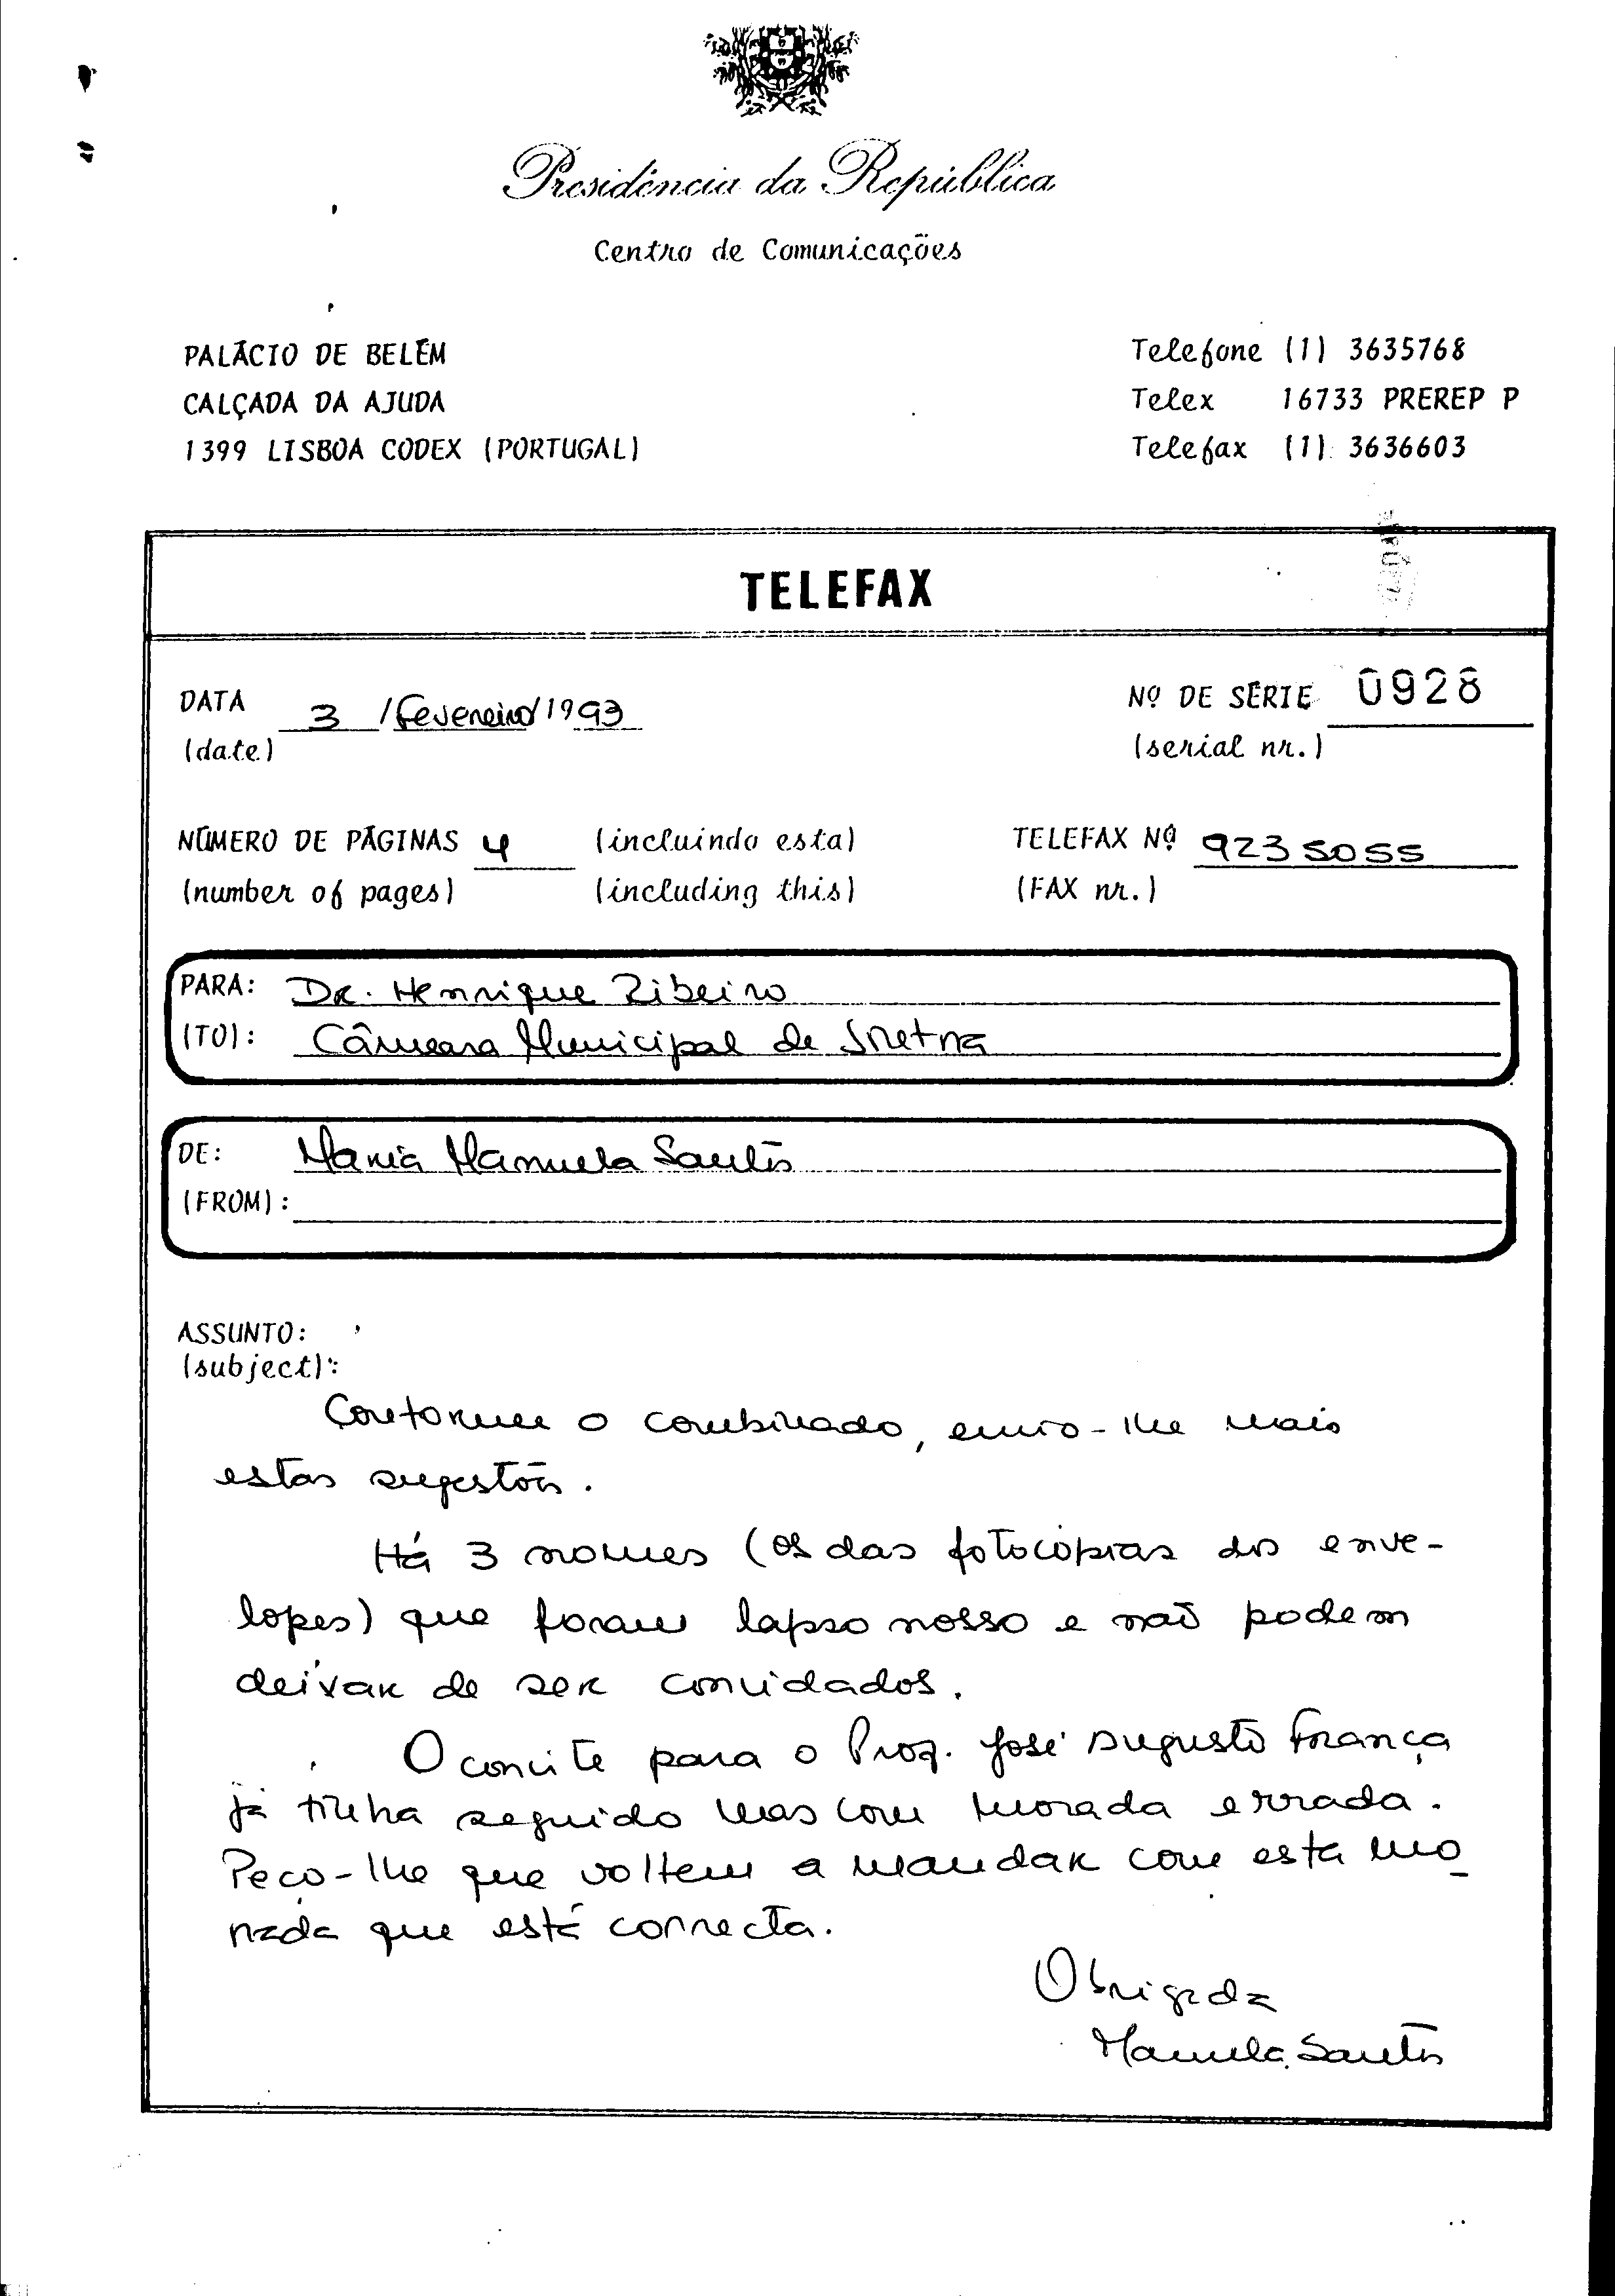 Presidência da República
Centro de Comunicações
PALÁCIO DE BELÉM
CALÇADA DA AJUDA
1399 LISBOA CODEX (PORTUGAL)
Telefone (1) 3635768
Telex 16733 PREREP P
Telefax (1) 3636603
TELEFAX
DATA 3 / Fevereiro / 1993
(date)
Nº DE SÉRIE 0928
(serial nr.)
NÚMERO DE PÁGINAS 4 (incluindo esta)
(number of pages) (including this)
TELEFAX Nº 9235055
(FAX nr.)
PARA: Dr. Henrique Ribeiro
(TO): Câmara Municipal de Sintra
DE: Maria Manuela Santos
(FROM):
ASSUNTO:
(subject):
Conforme o combinado, envio-lhe mais
estas sugestões.
Há 3 nomes (os das fotocópias dos enve-
lopes) que foram lapso nosso e não podem
deixar de ser convidados.
O convite para o Prof. José Augusto França
já tinha seguido mas com morada errada.
Peço-lhe que voltem a mandar com esta mo-
rada que está correcta.
Obrigada
Manuela Santos